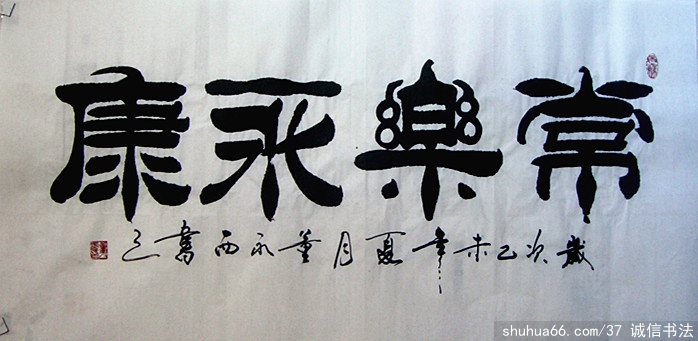 常樂永康
歲次乙未年夏月董永西書之
shuhua66.com/37 诚信书法